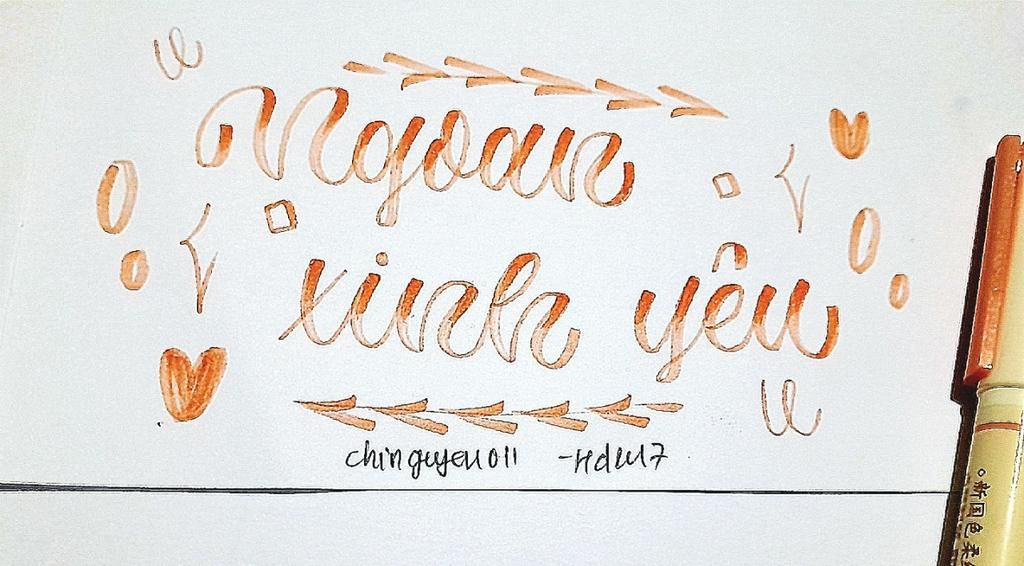 Ngoan
xinh yêu
chinguyen011 -Hdw17
新国色柔